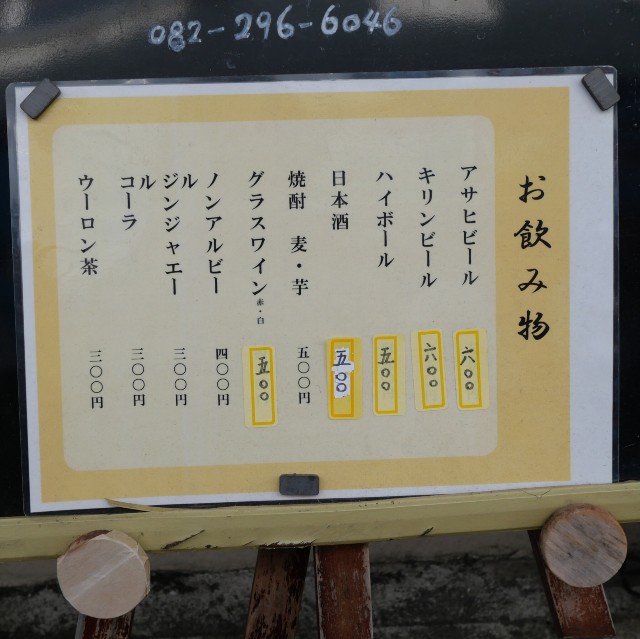 082-296-6046
お飲み物
アサヒビール 六〇〇
キリンビール 六〇〇
ハイボール 五〇〇
日本酒 五〇〇
焼酎 麦・芋 五〇〇円
グラスワイン 赤・白 五〇〇
ノンアルビー 四〇〇円
ル
ジンジャエー 三〇〇円
ル
コーラ 三〇〇円
ウーロン茶 三〇〇円